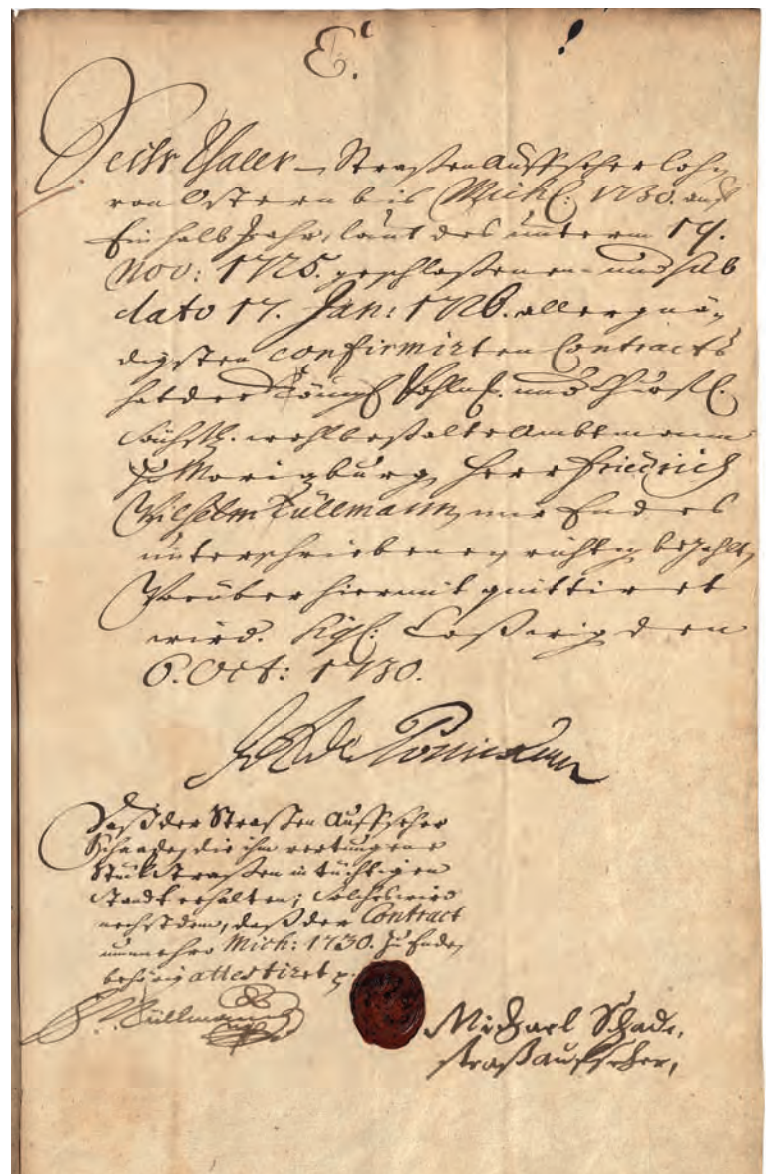 E.
Sechs Thaler – Straßen Auffseher lohn
von Ostern bis Mich: 1730. auf
Ein halb Jahr, laut des unterm 19.
Nov: 1725. geschloßenen und sub
dato 17. Jan: 1726. allergnä-
digsten confirmirten Contracts
hat der Königl. Pohln. und Churfl.
Sächß. wohlbestalte Ambtmann
zu Morizburg, Herr Friedrich
Wilhelm Küllmann, mir Endes
unterschriebenen richtig bezahlt,
Worüber hiermit quittiret
wird. Sigl: Coßwig den
6. Oct: 1730.
Daß der Straßen Auffseher
Schade, die ihm
Stück Straßen in tüchtigen
Stand erhalten; Solches wird
nechst dem, daß der Contract
nunmehro Mich: 1730. zu Ende,
behörig attestiret
Küllmann
Michael Schade,
straßauffseher,